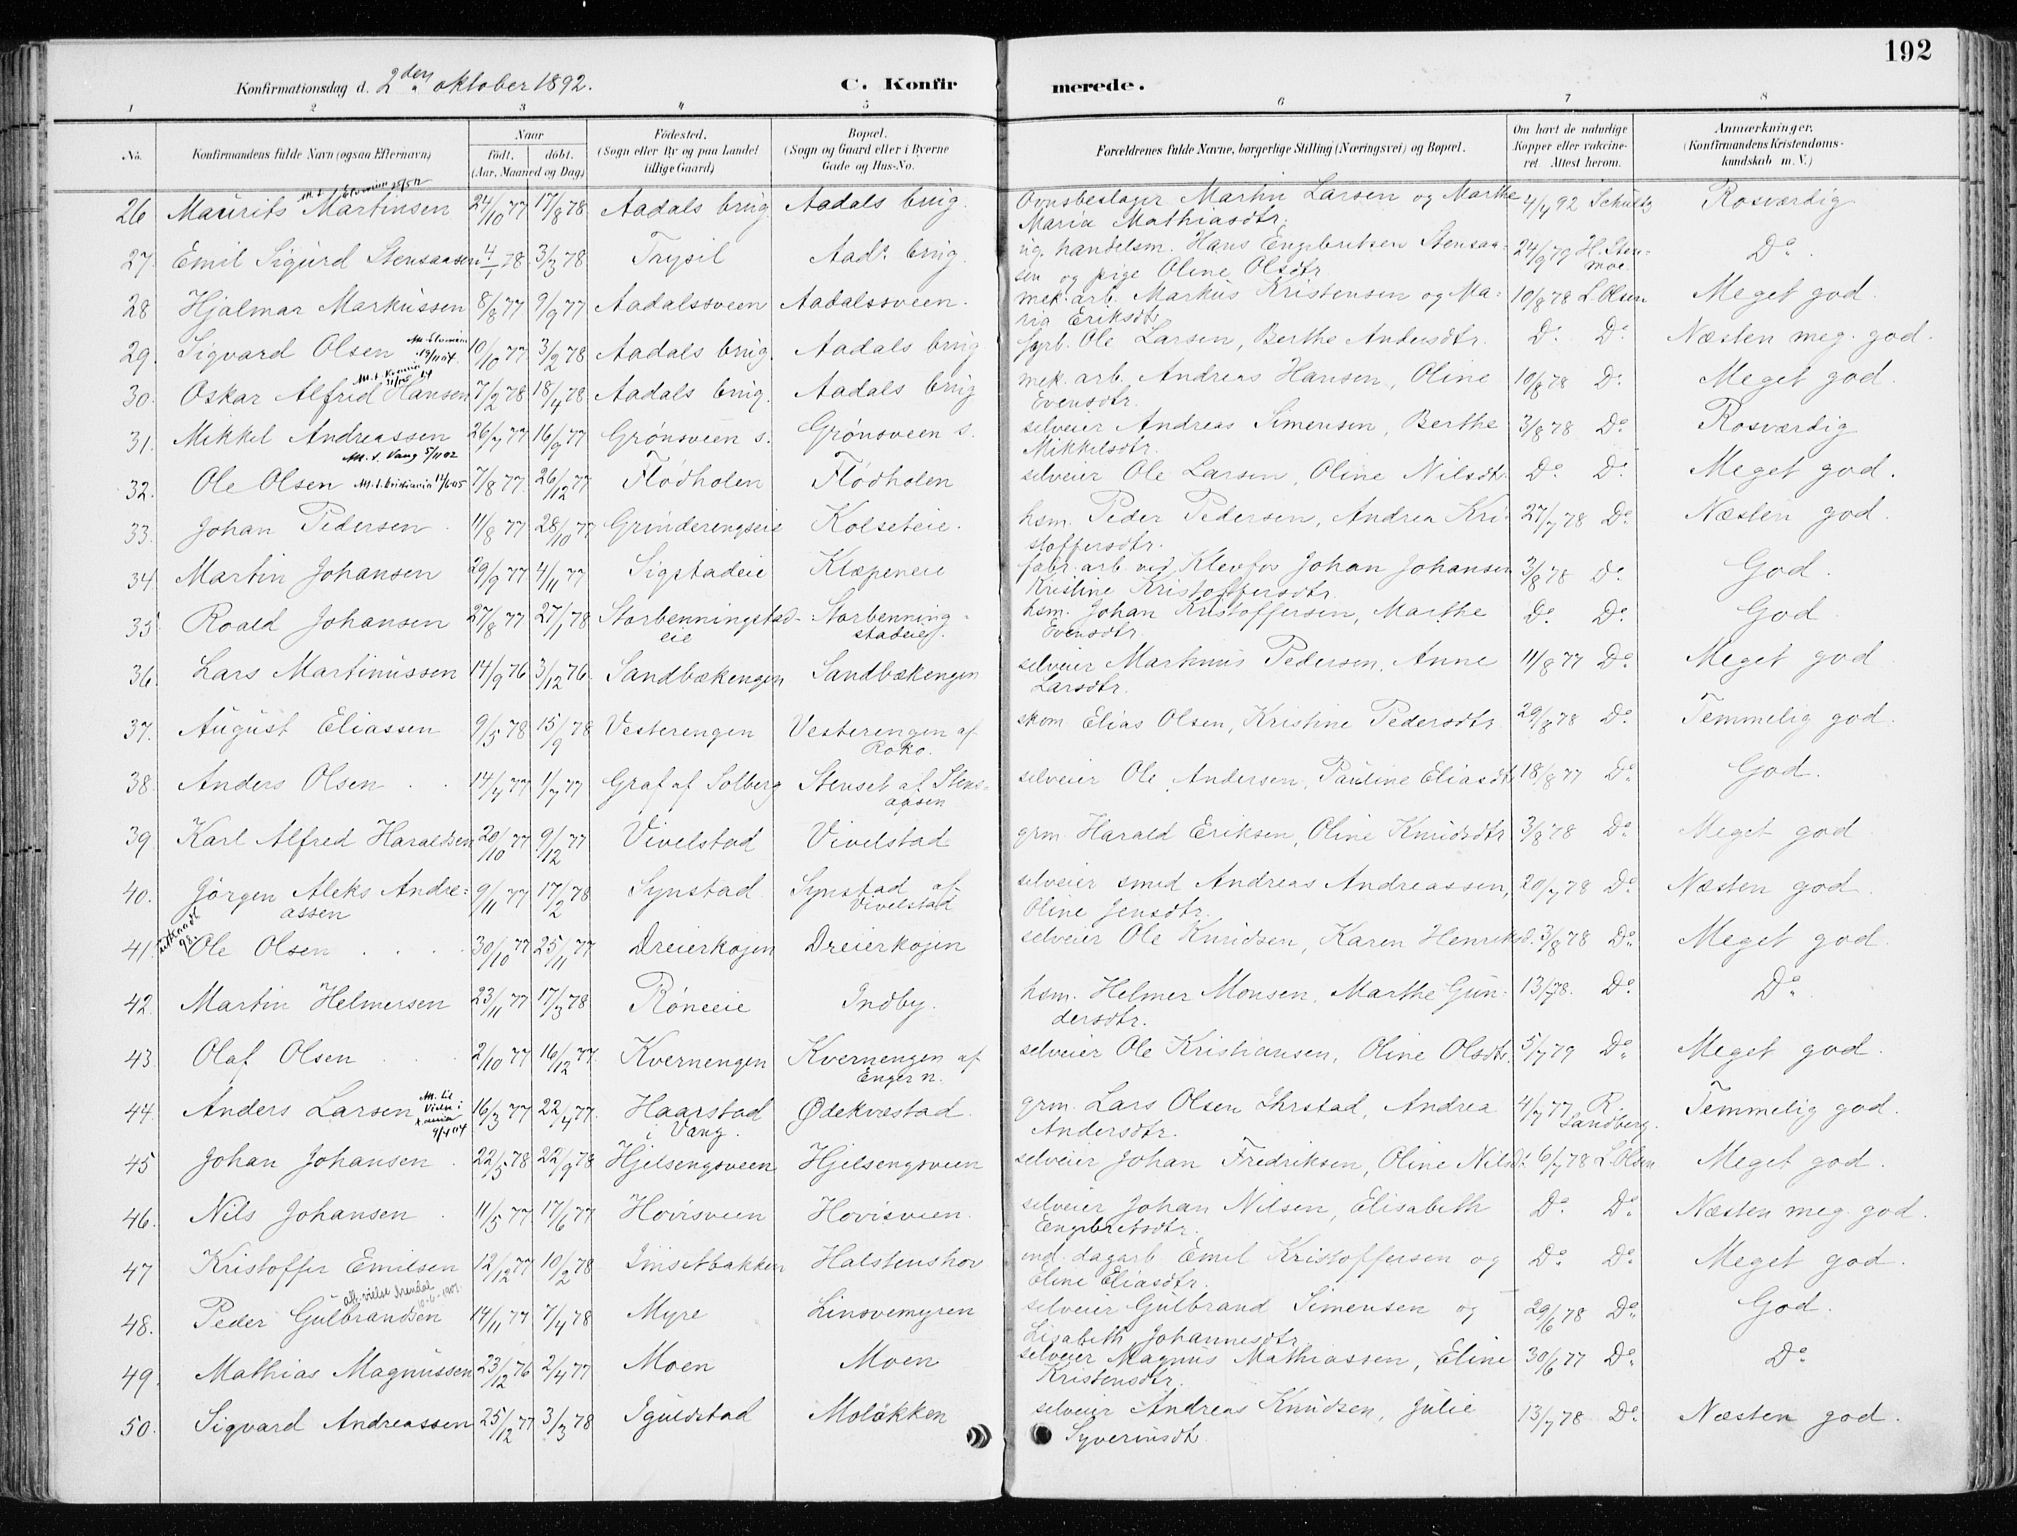 192
Konfirmationsdag d. 2den oktober 1892. C. Konfir merede.
1 2 3 4 5 6 7 8
No. Konfirmandens fulde Navn (ogsaa Efternavn) Naar født. døbt. (Aar, Maaned og Dag) Fødested. (Sogn eller By og paa Landet tillige Gaard) Bopæl. (Sogn og Gaard eller i Byerne Gade og Hus-No. Forældrenes fulde Navne, borgerlige Stilling (Næringsvei) og Bopæl. Om havt de naturlige Kopper eller vaccineret Attest herom. Anmærkninger. (Konfirmandens Kristendomskundskab m. V.)
26 Maurits Martinsen 24/10 77 17/8 78 Aadals brug Aadals brug. Ovnsbeslager Martin Larsen og Marthe 4/4 92 Schultz Rosværdig
Maria Mathiasdtr.
27. Emil Sigurd Stensaasen 4/1 78. 3/3 78 Trysil Aads brug. ug. handelsm. Hans Engebretsen Stensaa- 24/9 79 H. Sten- Do.
sen og pige Oline Olsdtr. moe.
28 Hjalmar Markussen 8/8 77 9/9 77 Aadalssveen Aadalssveen. mek. arb. Markus Kristensen og Ma- 10/8 78 L. Olsen Meget god.
rig Eriksdtr.
29. Sigvard Olsen 10/10 77 3/2 78 Aadals brug. Aadals brug Ole Larsen, Berthe Andersdtr. Do. Do. Næsten meg. god.
30. Oskar Alfred Hansen 7/2 78 18/4 78 Aadals brug. Aadals brug mek. arb. Andreas Hansen, Oline 10/8 78 Do. Meget god.
Evensdtr.
31. Mikkel Andreassen 26/7 77 16/9 77 Grønsveen s. Grønsveen s. selveier Andreas Simensen, Berthe 3/8 78 Do. Rosværdig
M. t. Vang 5/11 02 Mikkelsdtr.
32. Ole Olsen M. t. Kristiania 7/8 77. 26/12 77 Flødholen Flødholen selveier Ole Larsen, Oline Nilsdtr. Do. Do. Meget god.
33. Johan Pedersen. 11/8 77 28/10 77 Grinderengseie Kolseteie. hsm. Peder Pedersen, Andrea Kri- 27/7 78 Do. Næsten god.
stoffersdtr.
34. Martin Johansen 29/9 77 4/11 77 Sigstadeie Klæpeneie fabr. arb. ved Klevfos Johan Johansen 3/8 78 Do. God.
Kristine Kristoffersdtr.
35 Roald Johansen 27/8 77 27/1 78 Storbenningstad- Storbenning- hsm. Johan Kristoffersen, Marthe Do. Do. God.
eie stadeie. Evensdtr.
36. Lars Martinussen 14/9 76 3/12 76. Sandbækengen Sandbækengen selveier Martinus Pedersen, Anne 11/8 77 Do. Meget god
Larsdtr.
37. August Eliassen 9/5 78 15/9 78 Vesterengen Vesterengen af skom. Elias Olsen, Kristine Pedersdtr. 29/8 78 Do. Temmelig god.
Roko.
38. Anders Olsen 14/4 77 1/7 77 Graf af Solberg Stenset af Stens- selveier Ole Andersen, Pauline Eliasdtr. 18/8 77 Do. God.
aasen
39 Karl Alfred Haraldsen 20/10 77 9/12 77 Vivelstad Vivelstad grm. Harald Eriksen, Oline Knudsdtr 3/8 78 Do. Meget god.
40. Jørgen Aleks Andre- 9/11 77 17/2 78 Synstad Synstad af selveier smed Andreas Andreassen, 20/7 78 Do. Næsten god.
assen Vivelstad Oline Jensdtr.
41. Ole Olsen 30/10 77 25/11 77 Dreierkojen Dreierkojen selveier Ole Knudsen, Karen Henriksd. 3/8 78 Do. Meget god.
42. Martin Helmersen 23/11 77 17/3 78 Røneeie Indby. hsm. Helmer Monsen, Marthe Gun- 13/7 78. Do. Do.
dersdtr.
43. Olaf Olsen 2/10 77 16/12 77. Kvernengen Kvernengen af selveier Ole Kristiansen, Oline Olsdtr. 5/7 79 Do. Meget god.
Enger n.
44. Anders Larsen 16/3 77 22/4 77. Haarstad Ødekvæstad. grm. Lars Olsen Ihrstad, Andrea 4/7 77 R. Temmelig god.
i Vang. Andersdtr. Sandberg.
45 Johan Johansen. 22/5 78 22/9 78 Hjelsengsveen Hjelsengsveen selveier Johan Fredriksen, Oline Nilsdt. 6/7 78 L. Olsen Meget god.
46. Nils Johansen 11/5 77 17/6 77 Høvisveen Høvisveen. selveier Johan Nilsen, Elisabeth Do. Do. Næsten meg. god.
Engebretsdtr.
47 Kristoffer Emilsen 12/12 77 10/2 78 Imsetbakken Halstenshov ind. dagarb Emil Kristoffersen og Do. Do. Meget god
Eline Eliasdtr.
48. Peder Gulbrandsen 14/11 77 7/4 78 Myre Linsvemyren selveier Gulbrand Simensen og 29/6 78 Do. God.
Lisabeth Johannesdtr.
49. Mathias Magnussen 23/12 76 2/4 77 Moen Moen selveier Magnus Mathiassen, Eline 30/6 77 Do. Do.
Kristensdtr.
50. Sigvard Andreassen 25/12 77 3/3 78 Iguldstad Moløkken selveier Andreas Knudsen, Julie 13/7 78 Do. Næsten god.
Syverinsdt.